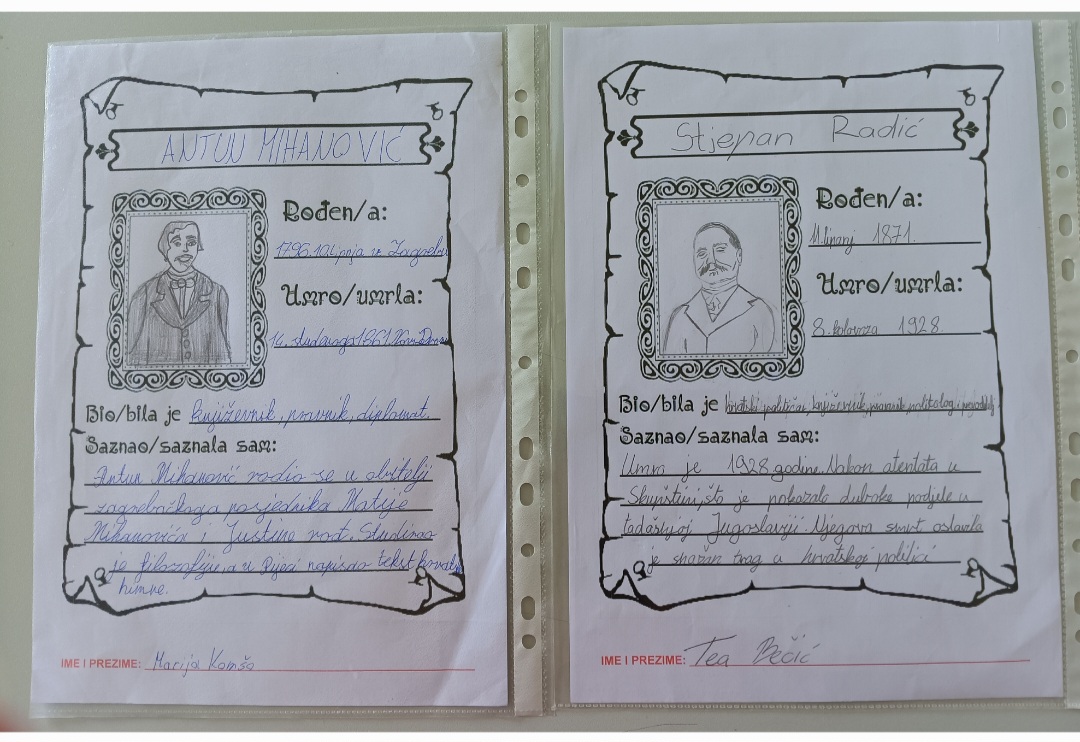 ANTUN MIHANOVIĆ
Rođen/a:
1796. 10. lipnja u Zagrebu
Umro/umrla:
14. studenoga 1861. Novi Dvori
Bio/bila je književnik, pravnik, diplomat.
Saznao/saznala sam:
Antun Mihanović rodio se u obitelji
zagrebačkoga posjednika Matije
Mihanovića i Justine rođ. Studirao
je filozofiju, a u Rijeci napisao tekst hrvatske
himne.
IME I PREZIME: Marija Komša
Stjepan Radić
Rođen/a:
11. lipanj 1871.
Umro/umrla:
8. kolovoza 1928.
Bio/bila je hrvatski političar, književnik, pravnik, politolog i
Saznao/saznala sam:
Umro je 1928. godine. Nakon atentata u
Skupštini, što je pokazalo duboke podjele u
tadašnjoj Jugoslaviji. Njegova smrt ostavila
je snažan trag u hrvatskoj politici
IME I PREZIME: Tea Bečić